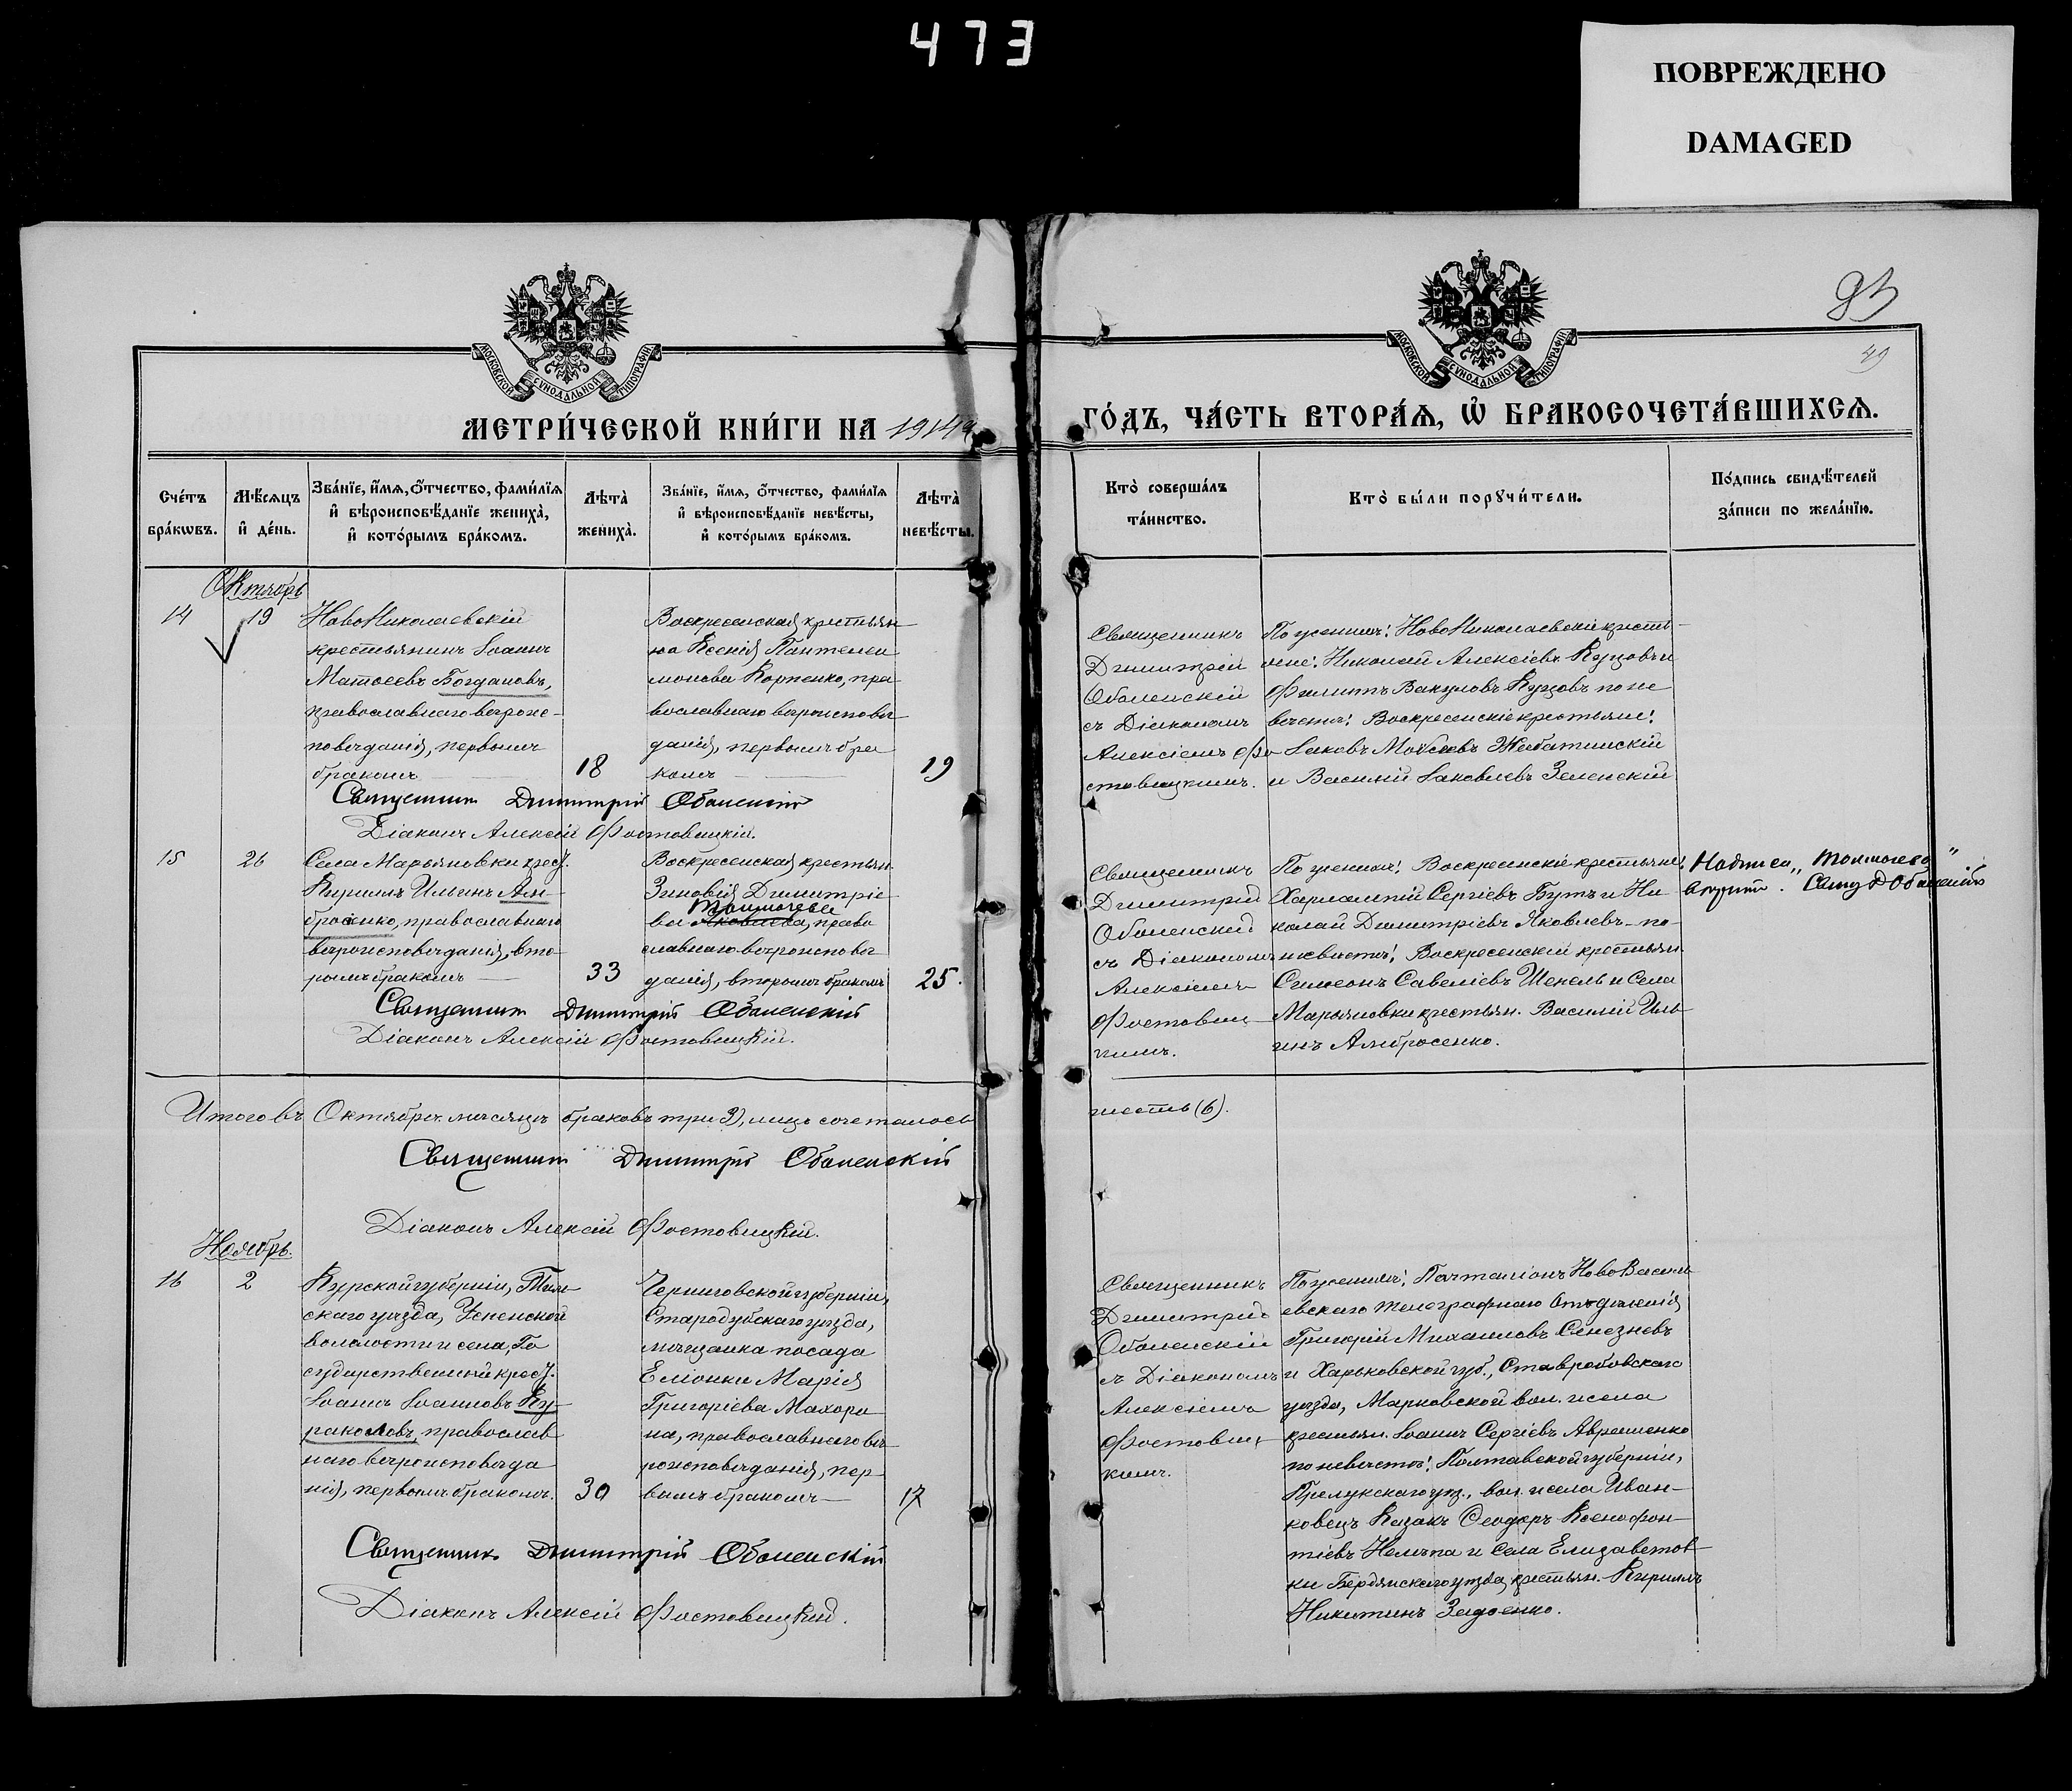 473
ПОВРЕЖДЕНО
DAMAGED
93
49
МОСКОВСКОЙ СѴНОДАЛЬНОЙ ТИПОГРАФІИ
МОСКОВСКОЙ СѴНОДАЛЬНОЙ ТИПОГРАФІИ
МЕТРИ́ЧЕСКОЙ КНИ́ГИ НА 1914й
ГО́ДЪ, ЧА́СТЬ ВТОРА́Ѧ, Ѽ БРАКОСОЧЕТА́ВШИХСѦ.
Сче́тъ бра́кѡвъ.
Мѣ́сѧцъ и҆ де́нь.
Зва́нїе, и҆́мѧ, ѻ҆́тчество, фами́лїѧ и҆ вѣроисповѣ́данїе жениха̀, и҆ кото́рымъ бра́комъ.
Лѣта̀ жениха̀.
Зва́нїе, и҆́мѧ, ѻ҆́тчество, фами́лїѧ и҆ вѣроисповѣ́данїе невѣ́сты, и҆ кото́рымъ бра́комъ.
Лѣта̀ невѣ́сты.
Кто̀ соверша́лъ та́инство.
Кто̀ бы́ли порꙋчи́тели.
По́дпись свидѣ́телей за́писи по жела́нїю.
Октябрь
14
19
НовоНиколаевскій
крестьянинъ Іоаннъ
Матѳеевъ Богдановъ,
православнаго вѣроис-
повѣданія, первымъ
бракомъ
18
Воскресенская крестьян-
ка Ксенія Пантелеи
монова Корпенко, пра
вославнаго вѣроисповѣ
данія, первымъ бра
комъ
19
Священникъ
Димитрій
Оболенскій
съ Діакономъ
Алексіемъ Фо
стовицкимъ.
По женихѣ: НовоНиколаевскіе кресть-
яне: Николай Алексіевъ Купцовъ и
Филиппъ Вакуловъ Купцовъ по не
вѣстѣ: Воскресенскіе крестьяне:
Іаковъ Моѵсеевъ Жаботинскій
и Василій Іаковлевъ Зеленскій
Священникъ Димитрій Оболенскій
Діаконъ Алексій Фостовицкій.
15
26
Села Марьяновки крест.
Кириллъ Ильинъ Ам-
бросенко, православнаго
вѣроисповѣданія, вто-
рымъ бракомъ
33
Воскресенская крестьян.
Зиновія Димитріе
Толмачева
ва Яковлева, право
славнаго вѣроисповѣ
данія, вторымъ бракомъ
25.
Священникъ
Димитрій
Оболенскій
съ Діакономъ
Алексіемъ
Фостовиц
кимъ.
По женихѣ: Воскресенскіе крестьяне:
Харлампій Сергіевъ Бутъ и Ни
колай Димитріевъ Яковлевъ по-
невѣстѣ: Воскресенскій крестьян.
Симеонъ Савеліевъ Шекель и села
Марьяновки крестьян. Василій Иль
инъ Амбросенко.
Надписан. „Толмачева“
вѣрно. Свящ. Д. Оболенскій
Священникъ Димитрій Оболенскій
Діаконъ Алексій Фостовицкій.
Итого въ Октябрѣ мѣсяцѣ браковъ три 3), лицъ сочеталось
шесть (6).
Священникъ Димитрій Оболенскій
Діаконъ Алексій Фостовицкій.
Ноябрь.
16
2
Курской губерніи, Тим-
скаго уѣзда, Успенской
волости и села, Го
сударственный крест.
Іоаннъ Іоанновъ Ку-
ракововъ, православ
наго вѣроисповѣда
нія, первымъ бракомъ.
30
Черниговской губерніи,
Стародубскаго уѣзда,
мѣщанка посада
Еліонки Марія
Григоріева Махори
на, православнаго вѣ
роисповѣданія, пер-
вымъ бракомъ
17
Священникъ
Димитрій
Оболенскій
съ Діакономъ
Алексіемъ
Фостовиц
кимъ.
По женихѣ: Почталіонъ НовоВасиль
евскаго телеграфнаго отдѣленія
Григорій Михаиловъ Селезневъ
и Харьковской губ., Старобѣльскаго
уѣзда, Марковской вол. и села
крестьян. Іоаннъ Сергіевъ Авраменко
по невѣстѣ: Полтавской губерніи,
Прилукскаго уѣз., вол. и села Иван-
ковецъ Казакъ Ѳеодоръ Ксенофон-
тіевъ Нельпа и села Елизаветов-
ки Бердянскаго уѣзда, крестьян. Кириллъ
Никитинъ Задоенко.
Священникъ Димитрій Оболенскій
Діаконъ Алексій Фостовицкій.